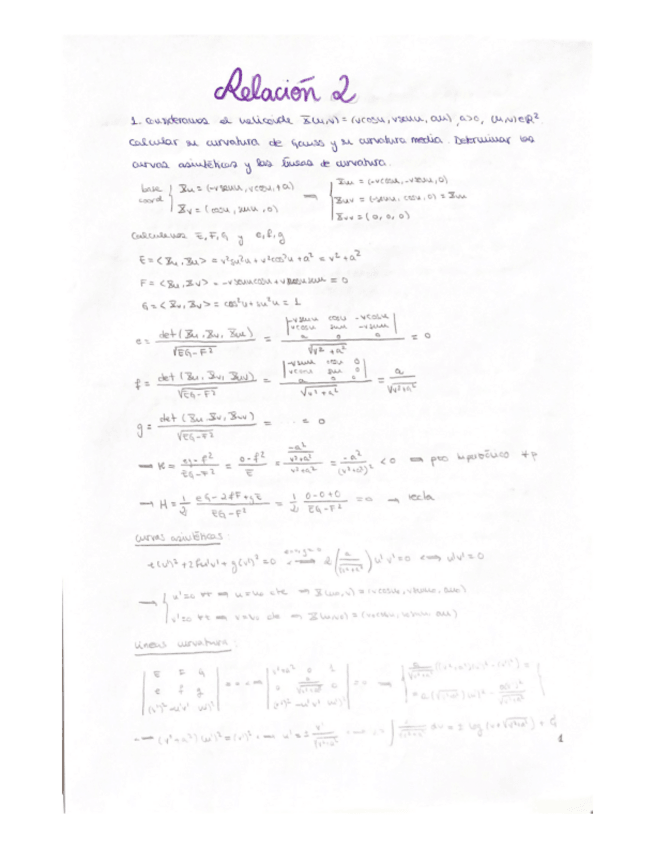 Relación 2
1. Consideramos el helicoide X(u,v) = (vcosu, vsenu, au), a>0, (u,v)∈R².
Calcular su curvatura de Gauss y su curvatura media. Determinar las
curvas asintóticas y las líneas de curvatura.
base coord { Xu = (-vsenu, vcosu, a) Xv = (cosu, senu, 0) → { Xuu = (-vcosu, -vsenu, 0) Xuv = (-senu, cosu, 0) = Xvu Xvv = (0, 0, 0)
Calculamos E, F, G y e, f, g
E = <Xu, Xu> = v²sen²u + v²cos²u + a² = v² + a²
F = <Xu, Xv> = -vsenucosu + vcosusenu = 0
G = <Xv, Xv> = cos²u + sen²u = 1
e = det(Xu, Xv, Xuu) / √EG-F² = |-vsenu cosu -vcosu; vcosu senu -vsenu; a 0 0| / √v²+a² = 0
f = det(Xu, Xv, Xuv) / √EG-F² = / √v²+a² = a / √v²+a²
g = det(Xu, Xv, Xvv) / √EG-F² = = 0
→ K = eg-f² / EG-F² = 0-f² / E = -a²/v²+a² / v²+a² = -a² / (v²+a²)² < 0 → pto hiperbólico ∀p
→ H = 1/2 eG-2fF+gE / EG-F² = 1/2 0-0+0 / EG-F² = 0 →
Curvas asintóticas
e(u')² + 2fu'v' + g(v')² = 0 e=g=0 2 (a / √v²+a²) u'v' = 0 ⟺ u'v' = 0
→ { u'=0 → u = u₀ cte → X(u₀,v) = (vcosu₀, vsenu₀, au₀)
v'=0 → v = v₀ cte → X(u,v₀) = (v₀cosu, v₀senu, au)
Líneas curvatura
|E F G; e f g; (v')² -u'v' (u')²| = 0 → |v²+a² 0 1; 0 a/√v²+a² 0; (v')² -u'v' (u')²| = 0
→ (v²+a²)(u')² = (v')² → u' = ± v' / √v²+a²
1